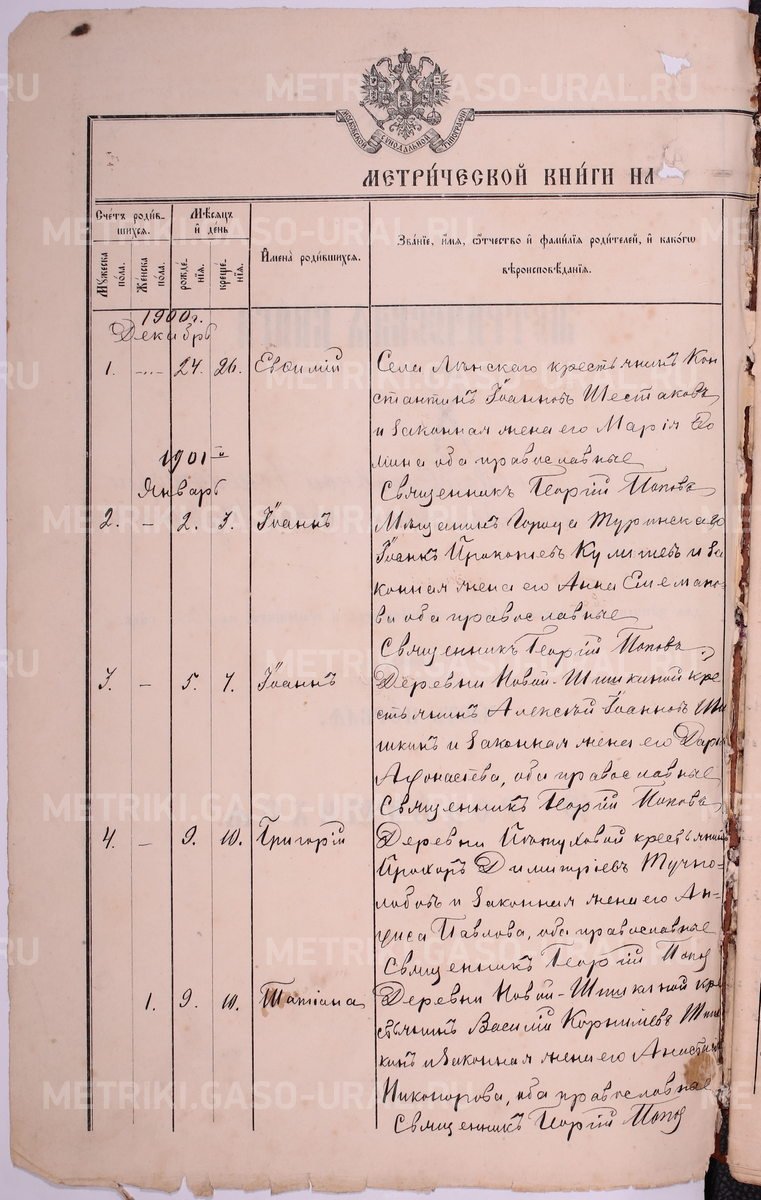 METRIKI.GASO-URAL.RU
МОСКОВСКОЙ СѴНОДАЛЬНОЙ ТИПОГРАФІИ
МЕТРИ́ЧЕСКОЙ КНИ́ГИ НА
Сче́тъ роди́в-
шихся.
Мꙋ́жеска
по́ла.
Же́нска
по́ла.
Мѣ́сяцъ
и҆ де́нь
рожде́-
нїѧ.
креще́-
нїѧ.
И҆мена̀ роди́вшихся.
Зва́нїе, и҆́мѧ, ѻ҆́тчество и҆ фами́лїѧ роди́телей, и҆ како́гѡ
вѣроисповѣ́данїѧ.
1900 г.
Декабрь
1. -..- 24. 26. Евѳимій Села крестьянинъ Кон
стантинъ Іоанновъ Шестаковъ
и законная жена его Марія Ѳо
мина оба православные
1901го
Январь
Священникъ Георгій Поповъ
2. - 2. 3. Іоаннъ Мѣщанинъ города Туринска
Іоаннъ Прокопіевъ и за
конная жена его Анна Емельяно
ва оба православные
Священникъ Георгій Поповъ
3. - 5. 7. Іоаннъ Деревни Новой-Шишкиной кре
стьянинъ Алексѣй Іоанновъ Ши
шкинъ и законная жена его Дарья
Афонасіева, оба православные
Священникъ Георгій Поповъ
4. - 9. 10. Григорій Деревни Пѣтуховой крестьянинъ
Прохоръ Димитріевъ Тучко-
лобовъ и законная жена его Ан-
фиса Павлова, оба православные
Священникъ Георгій Попов
1. 9. 10. Татіана Деревни Новой-Шишкиной кре
стьянинъ Василій Корниліевъ Шиш
кинъ и законная жена его
Никонорова, оба православные
Священникъ Георгій Попов